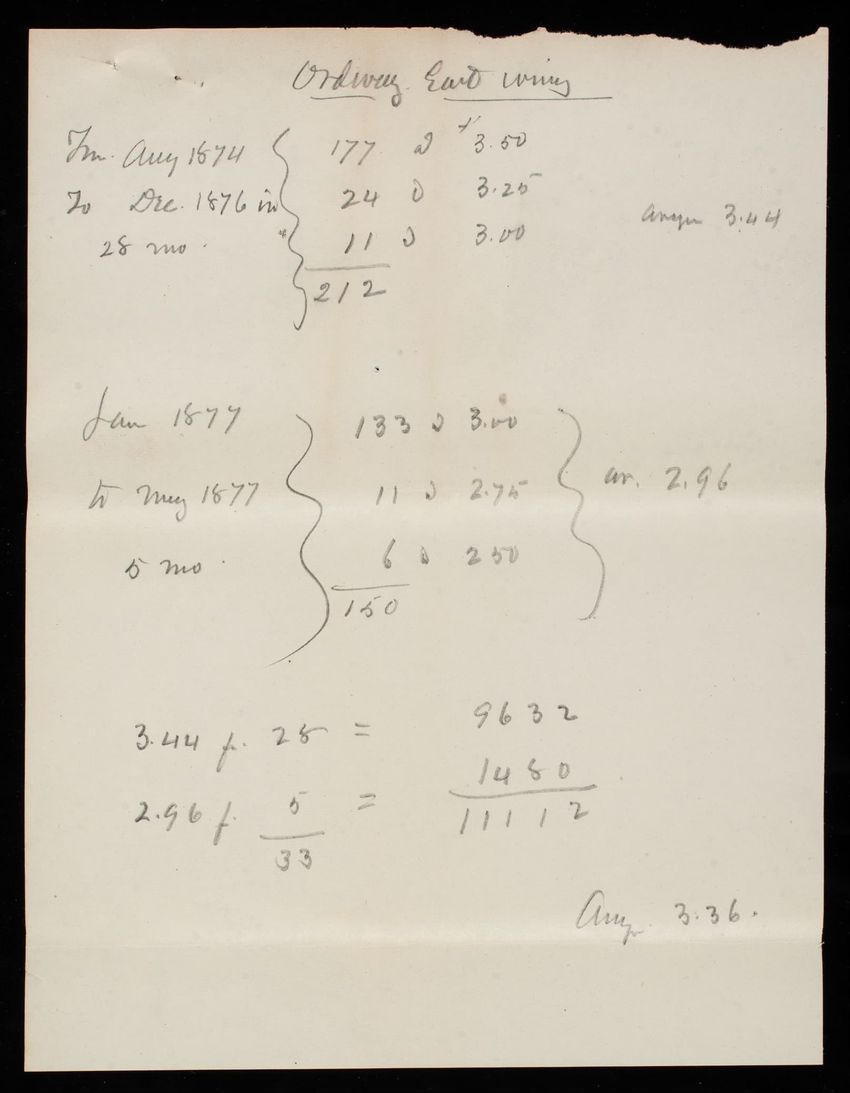 Ordway East wing
Fm. Aug 1874 177 @ $3.50
To Dec. 1876 in 24 @ 3.25 avge 3.44
28 mo. 11 @ 3.00
212
Jan 1877 133 @ 3.00
to May 1877 11 @ 2.75 av. 2.96
5 mo. 6 @ 2 50
150
3.44 f. 28 = 9632
2.96 f. 5 = 1480
33 11112
Avge. 3.36.